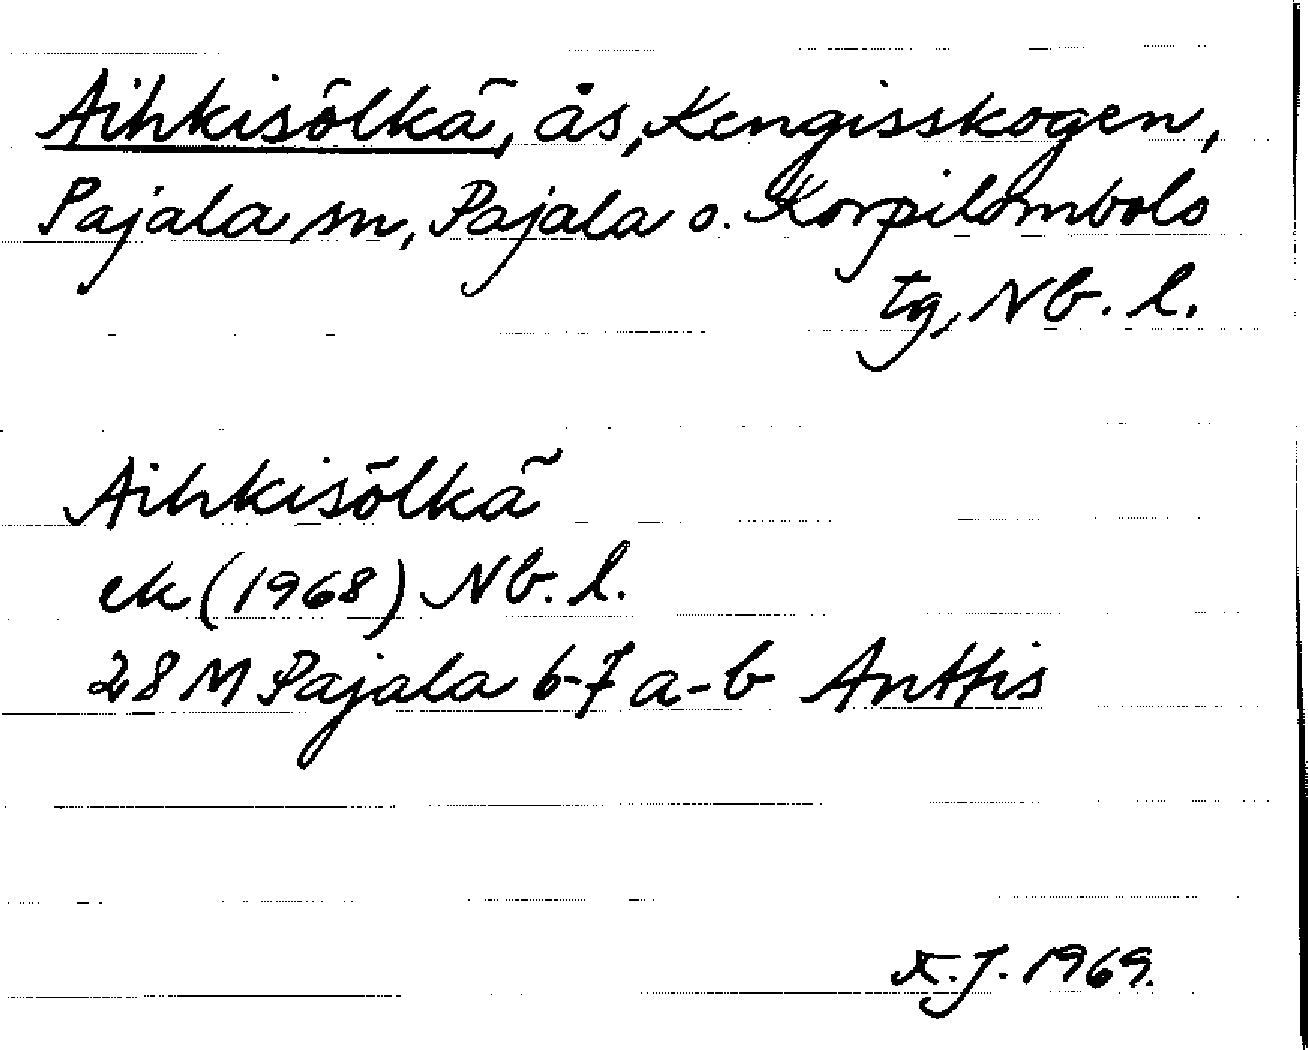 Aihkisölkä, ås, Kengisskogen,
Pajala sn, Pajala o. Korpilombolo
tg, Nb. l.
Aihkisölkä
ek (1968) Nb. l.
28 M Pajala 6-7 a-b Anttis
K.J. 1969.